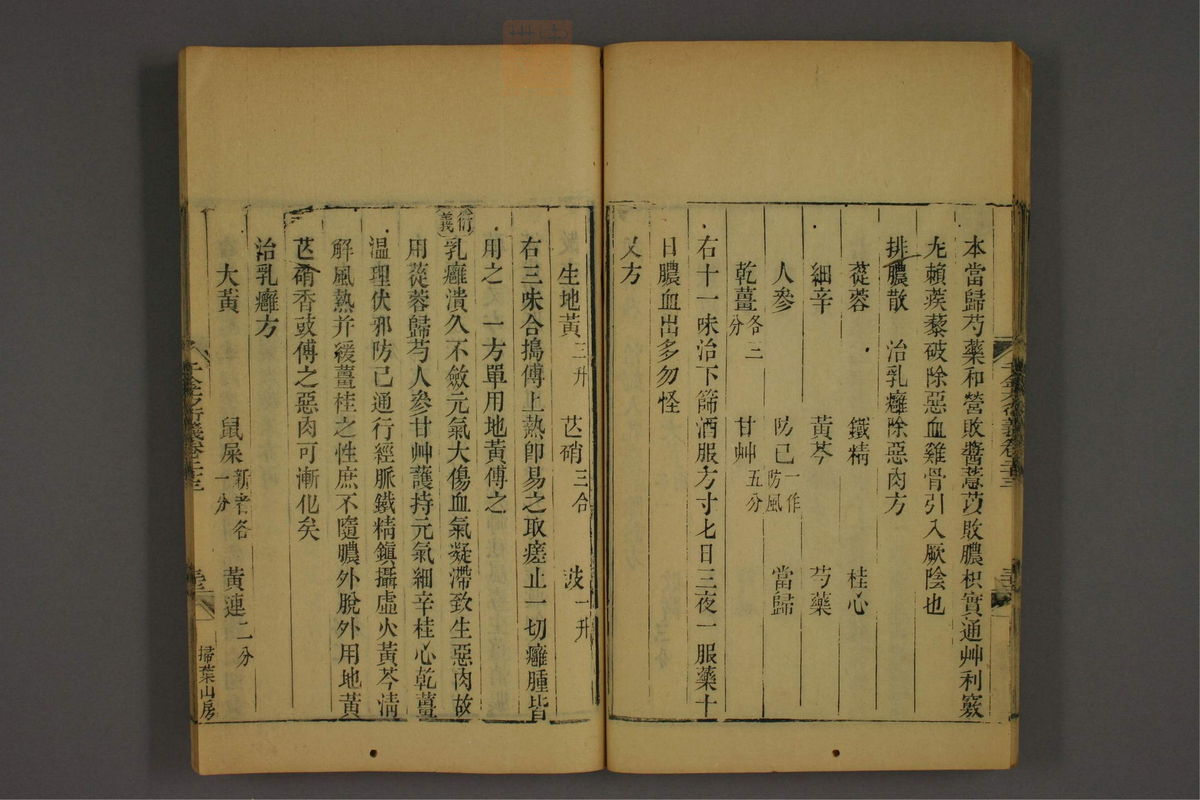 本當歸芍藥和營敗醬薏苡敗膿枳實通艸利竅
尤賴蒺藜破除惡血雞骨引入厥陰也
排膿散 治乳癰除惡肉方
蓯蓉 鐵精 桂心
細辛 黃芩 芍藥
人參 防己一作防風 當歸
乾薑各三分 甘艸五分
右十一味治下篩酒服方寸匕日三夜一服藥十
日膿血出多勿怪
又方
生地黃三升 芒硝三合 豉一升
右三味合搗傅上熱卽易之取瘥止一切癰腫皆
用之 一方單用地黃傅之
衍義 乳癰潰久不斂元氣大傷血氣凝滯致生惡肉故
用蓯蓉歸芍人參甘艸護持元氣細辛桂心乾薑
温理伏邪防己通行經脈鐵精鎮攝虛火黃芩淸
解風熱并緩薑桂之性庶不隨膿外脫外用地黃
芒硝香豉傅之惡肉可漸化矣
治乳癰方
大黃 鼠屎新者各一分 黃連二分
掃葉山房